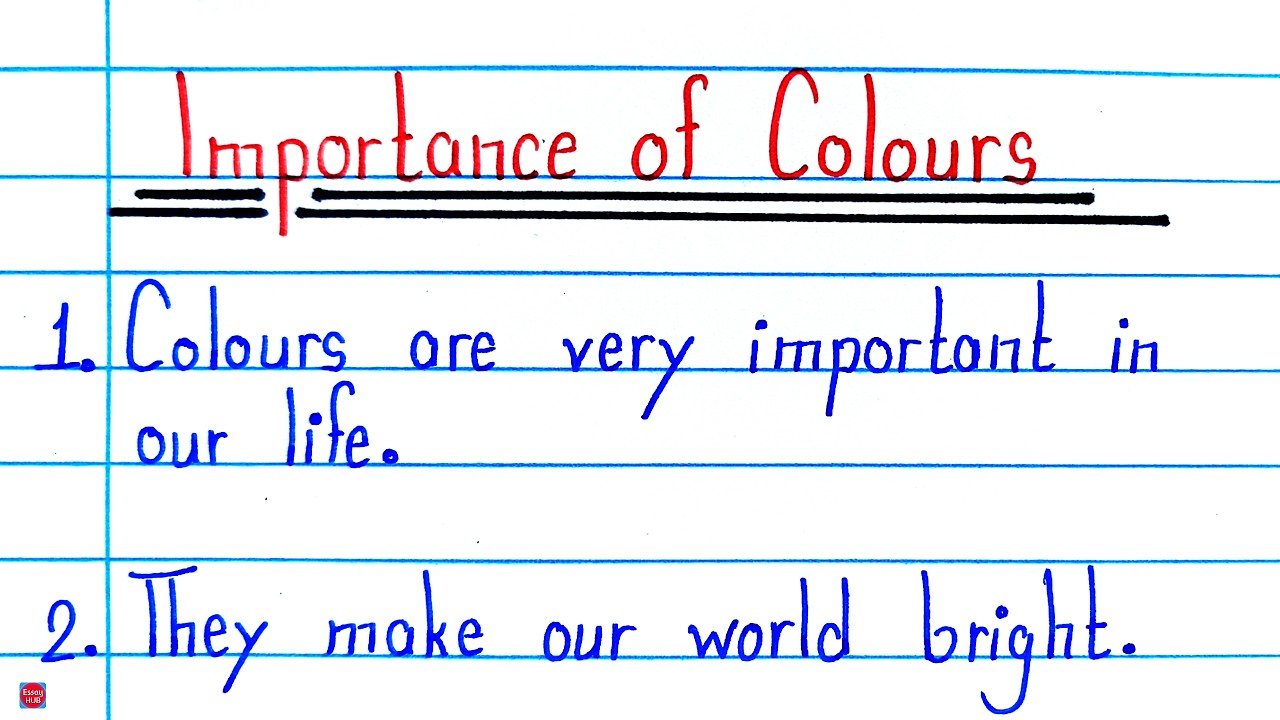 Importance of Colours
1. Colours are very important in
our life.
2. They make our world bright.
Essay
HUB